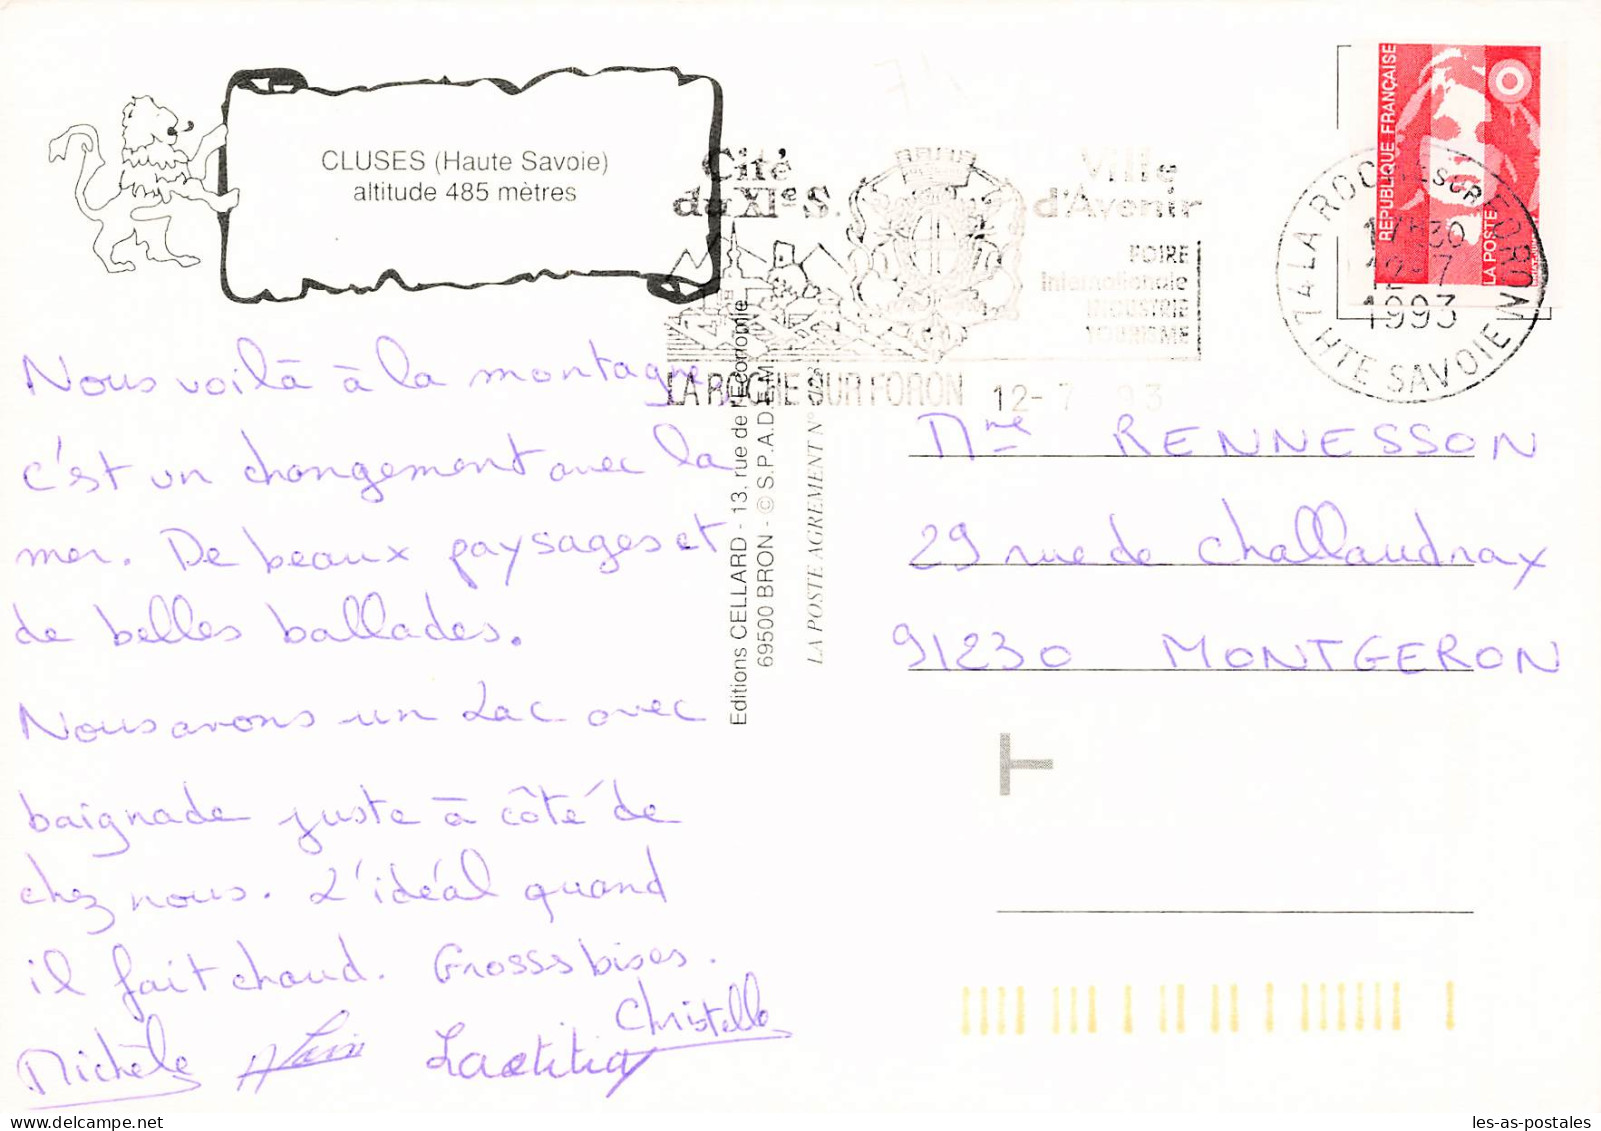 CLUSES (Haute Savoie)
altitude 485 mètres
Cité
du XIe S.
Ville
d'Avenir
FOIRE
Internationale
INDUSTRIE
TOURISME
LA ROCHE SUR FORON 12-7 93
REPUBLIQUE FRANÇAISE
LA POSTE
74 LA ROCHE SUR FORON
HTE SAVOIE
12-7
1993
Nous voilà à la montagne,
c'est un changement avec la
mer. De beaux paysages et
de belles ballades.
Nous avons un Lac avec
baignade juste à côté de
chez nous. L'idéal quand
il fait chaud. Grosss bises.
Christelle
Michèle Alain Laetitia
Editions CELLARD - 13, rue de l'Economie
69500 BRON - © S.P.A.D.E.M.
LA POSTE AGREMENT N°
Mme RENNESSON
29 rue de Challaudrax
91230 MONTGERON
T
les-as-postales